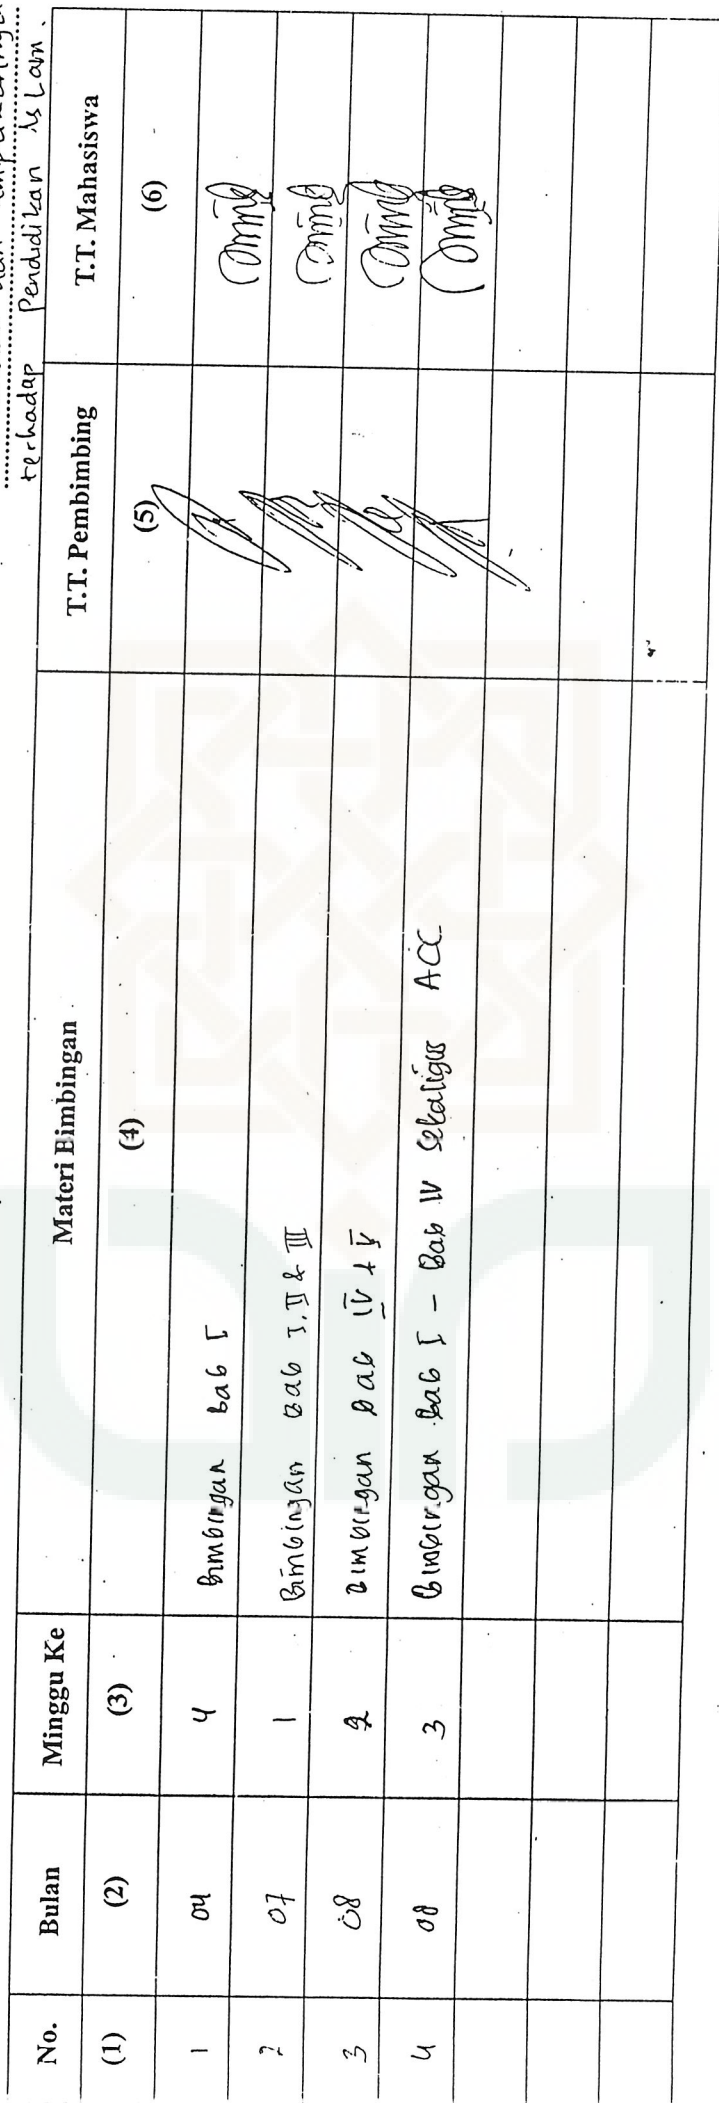 terhadap Pendidikan Islam.
No. Bulan Minggu Ke Materi Bimbingan T.T. Pembimbing T.T. Mahasiswa
(1) (2) (3) (4) (5) (6)
1 04 4 Bimbingan Bab I
2 07 1 Bimbingan Bab I, II & III
3 08 2 Bimbingan Bab IV & V
4 08 3 Bimbingan Bab I - Bab IV Sekaligus ACC